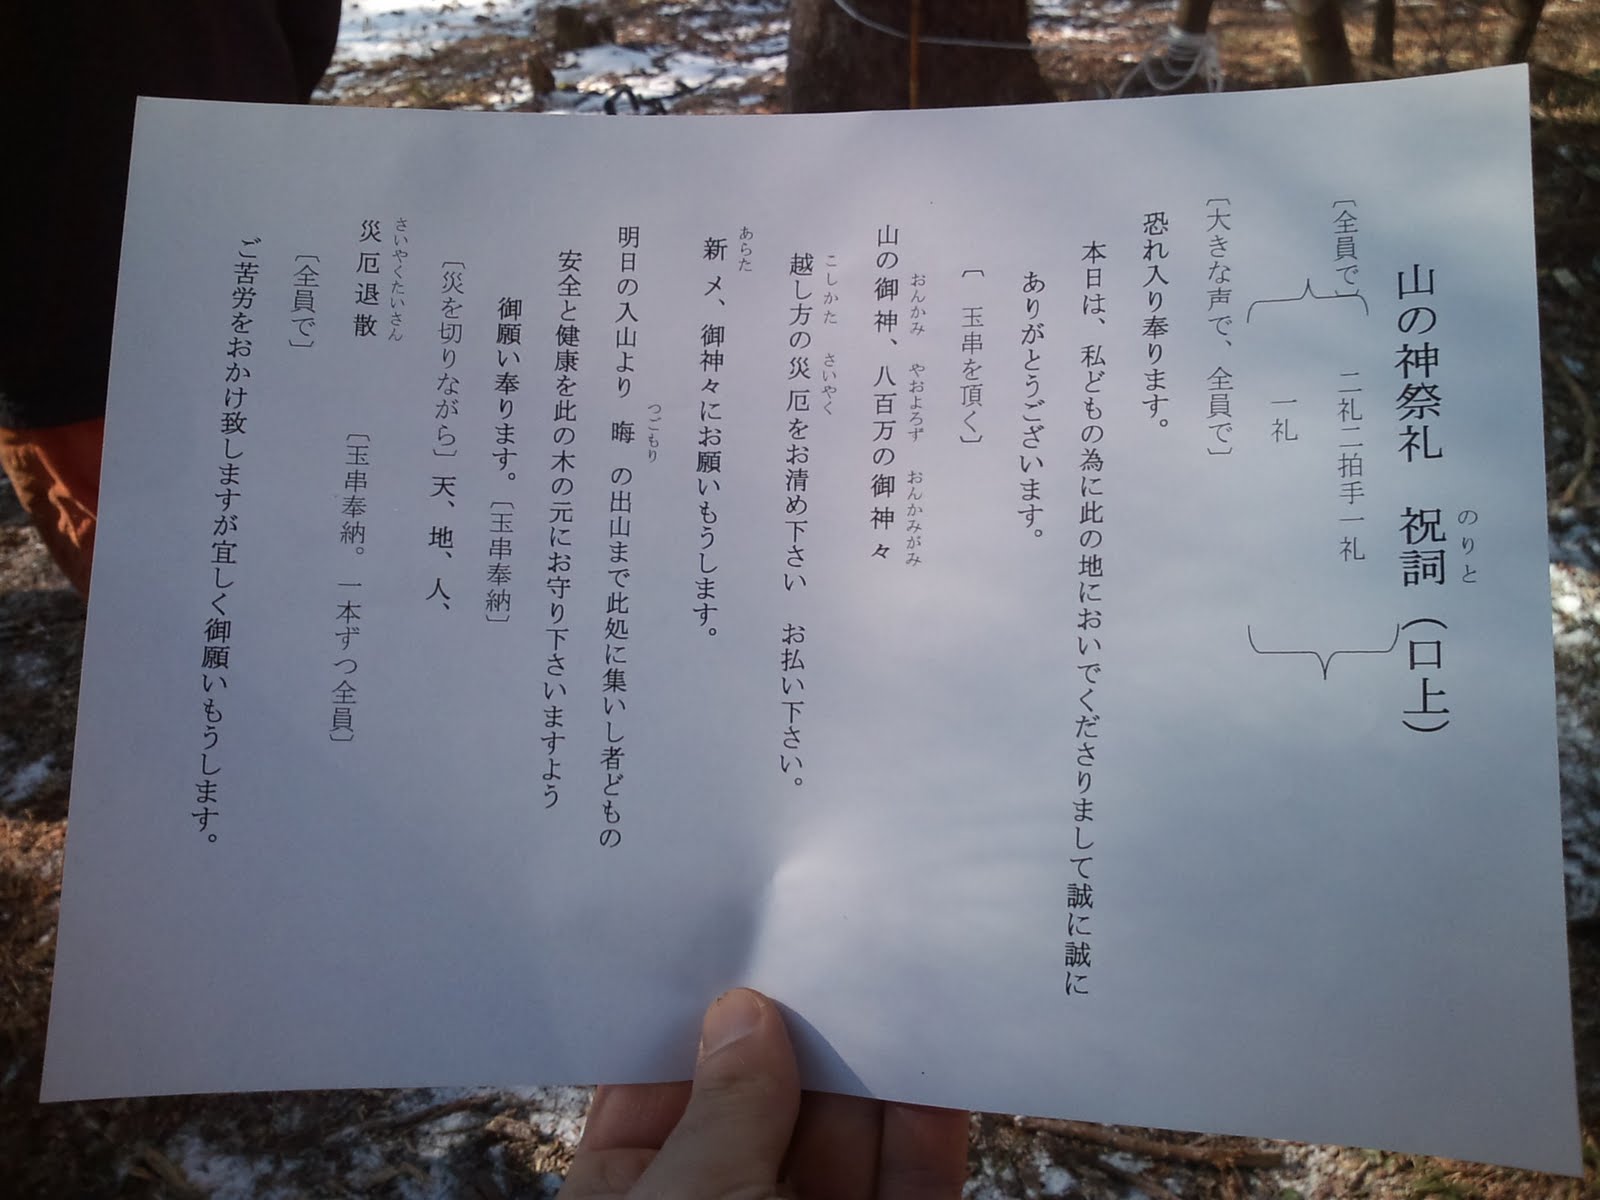 山の神祭礼　祝詞（口上）
のりと
〔全員で〕　二礼二拍手一礼
一礼
〔大きな声で、全員で〕
恐れ入り奉ります。
本日は、私どもの為に此の地においでくださりまして誠に誠に
ありがとうございます。
〔　玉串を頂く〕
おんかみ　やおよろず　おんかみがみ
山の御神、八百万の御神々
こしかた　さいやく
越し方の災厄をお清め下さい　お払い下さい。
あらた
新メ、御神々にお願いもうします。
つごもり
明日の入山より　晦　の出山まで此処に集いし者どもの
安全と健康を此の木の元にお守り下さいますよう
御願い奉ります。〔玉串奉納〕
〔災を切りながら〕天、地、人、
さいやくたいさん
災厄退散　〔玉串奉納。一本ずつ全員〕
〔全員で〕
ご苦労をおかけ致しますが宜しく御願いもうします。